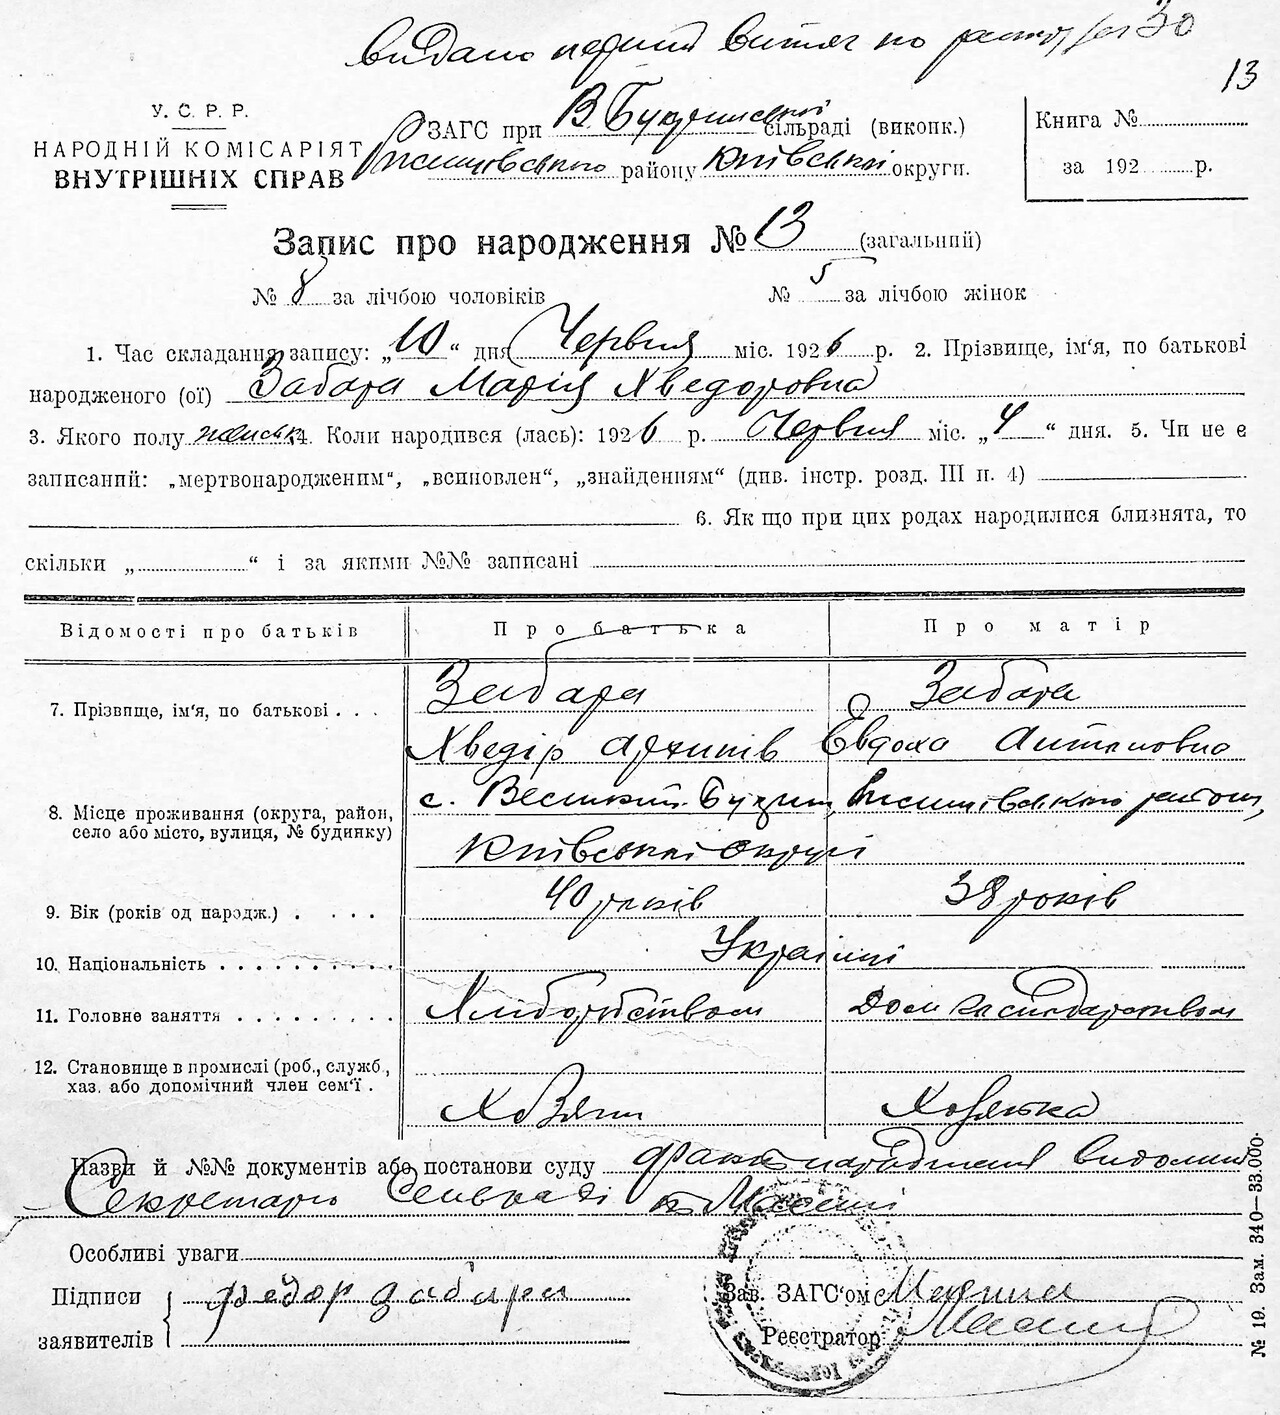 видано перший витяг по
13
У. С. Р. Р.
НАРОДНІЙ КОМІСАРІЯТ
ВНУТРІШНІХ СПРАВ
ЗАГС при В. Букринській сільраді (виконк.)
Ржищівського району Київської округи.
Книга №
за 192 р.
Запис про народження № 13 (загальний)
№ 8 за лічбою чоловіків № 5 за лічбою жінок
1. Час складання запису: „10“ дня Червня міс. 1926 р. 2. Прізвище, ім'я, по батькові
народженого (ої) Забара Марія Хведоровна
3. Якого полу жіноч. 4. Коли народився (лась): 1926 р. Червня міс. „4“ дня. 5. Чи не є
записаний: „мертвонародженим“, „всиновлен“, „знайденням“ (див. інстр. розд. III п. 4)
6. Як що при цих родах народилися близнята, то
скільки „ “ і за якими №№ записані
Відомості про батьків Про батька Про матір
7. Прізвище, ім'я, по батькові . . . Забара Забара
Хведір Архипів Євдоха Антоновна
8. Місце проживання (округа, район, село або місто, вулиця, № будинку) с. Великий Букрин, Ржищівського району,
Київської округи
9. Вік (років од народж.) . . . . 40 років 38 років
10. Національність . . . . . . . . . . Українці
11. Головне заняття . . . . . . . . . Хліборобством Дом господарством
12. Становище в промислі (роб., служб.,
хаз. або допомічний член сем'ї . Хазяїн Хазяйка
Назви й №№ документів або постанови суду факт народження
Секретарь Сельради
Особливі уваги
Підписи
заявителів
федор забара
Зав. ЗАГС'ом
Реєстратор
№ 19. Зам. 340—33.000.